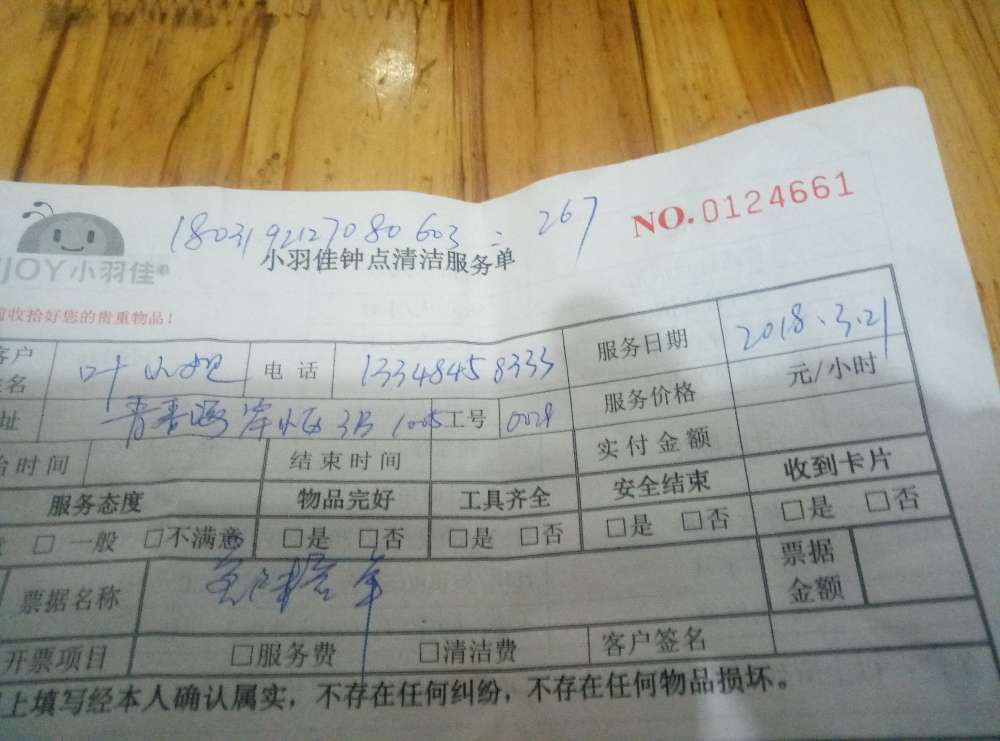 180319212708060 3 : 267
NO.0124661
JOY小羽佳
小羽佳钟点清洁服务单
收拾好您的贵重物品!
客户 姓名 叶 电话 13348458333 服务日期 2018.3.21
址 1005 工号 0029 服务价格 元/小时
始时间 结束时间 实付金额
服务态度 物品完好 工具齐全 安全结束 收到卡片
□一般 □不满意 □是 □否 □是 □否 □是 □否 □是 □否
票据名称 票据金额
开票项目 □服务费 □清洁费 客户签名
上填写经本人确认属实,不存在任何纠纷,不存在任何物品损坏。